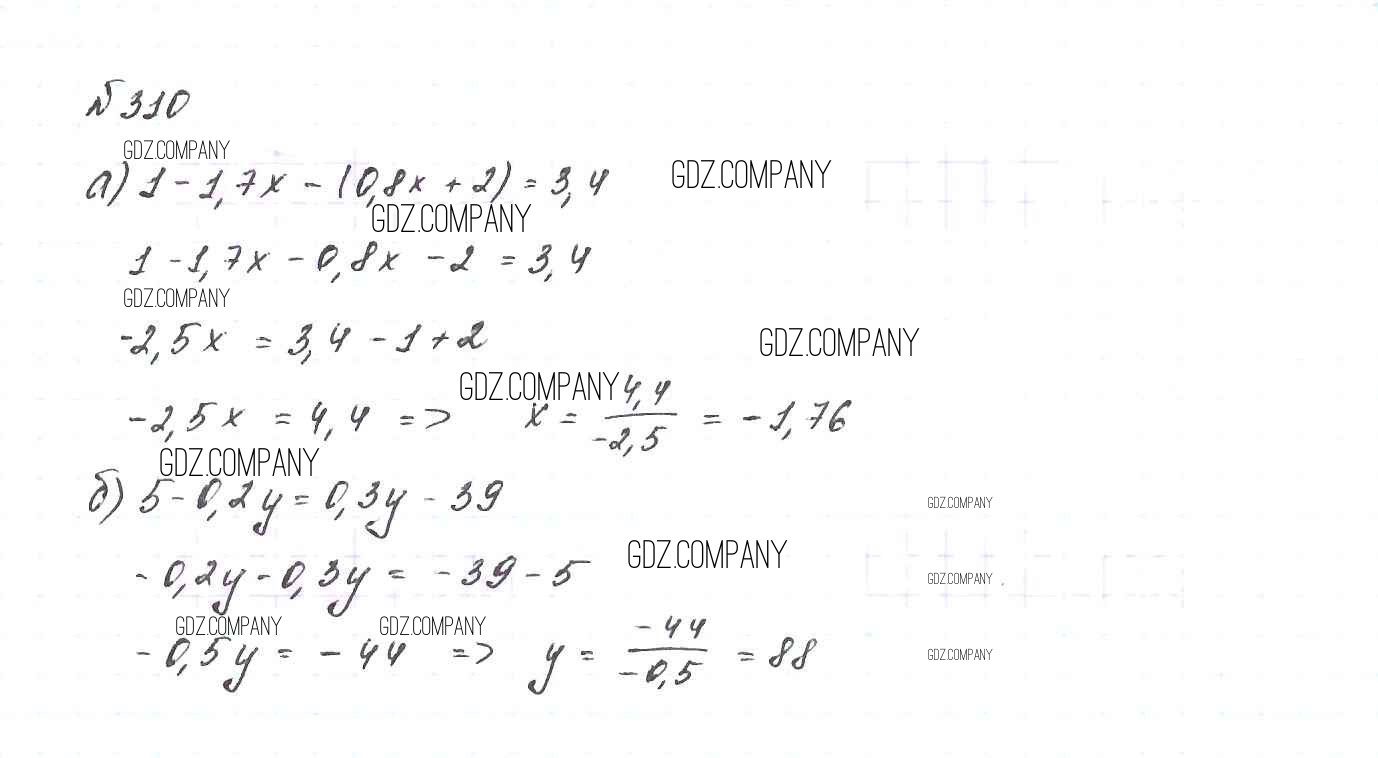 № 310
GDZ.COMPANY
а) 1 - 1,7x - (0,8x + 2) = 3,4
GDZ.COMPANY
GDZ.COMPANY
1 - 1,7x - 0,8x - 2 = 3,4
GDZ.COMPANY
-2,5x = 3,4 - 1 + 2
GDZ.COMPANY
GDZ.COMPANY
-2,5x = 4,4 => x = 4,4/-2,5 = -1,76
GDZ.COMPANY
б) 5 - 0,2y = 0,3y - 39
GDZ.COMPANY
GDZ.COMPANY
-0,2y - 0,3y = -39 - 5
GDZ.COMPANY
GDZ.COMPANY GDZ.COMPANY
-0,5y = -44 => y = -44/-0,5 = 88
GDZ.COMPANY